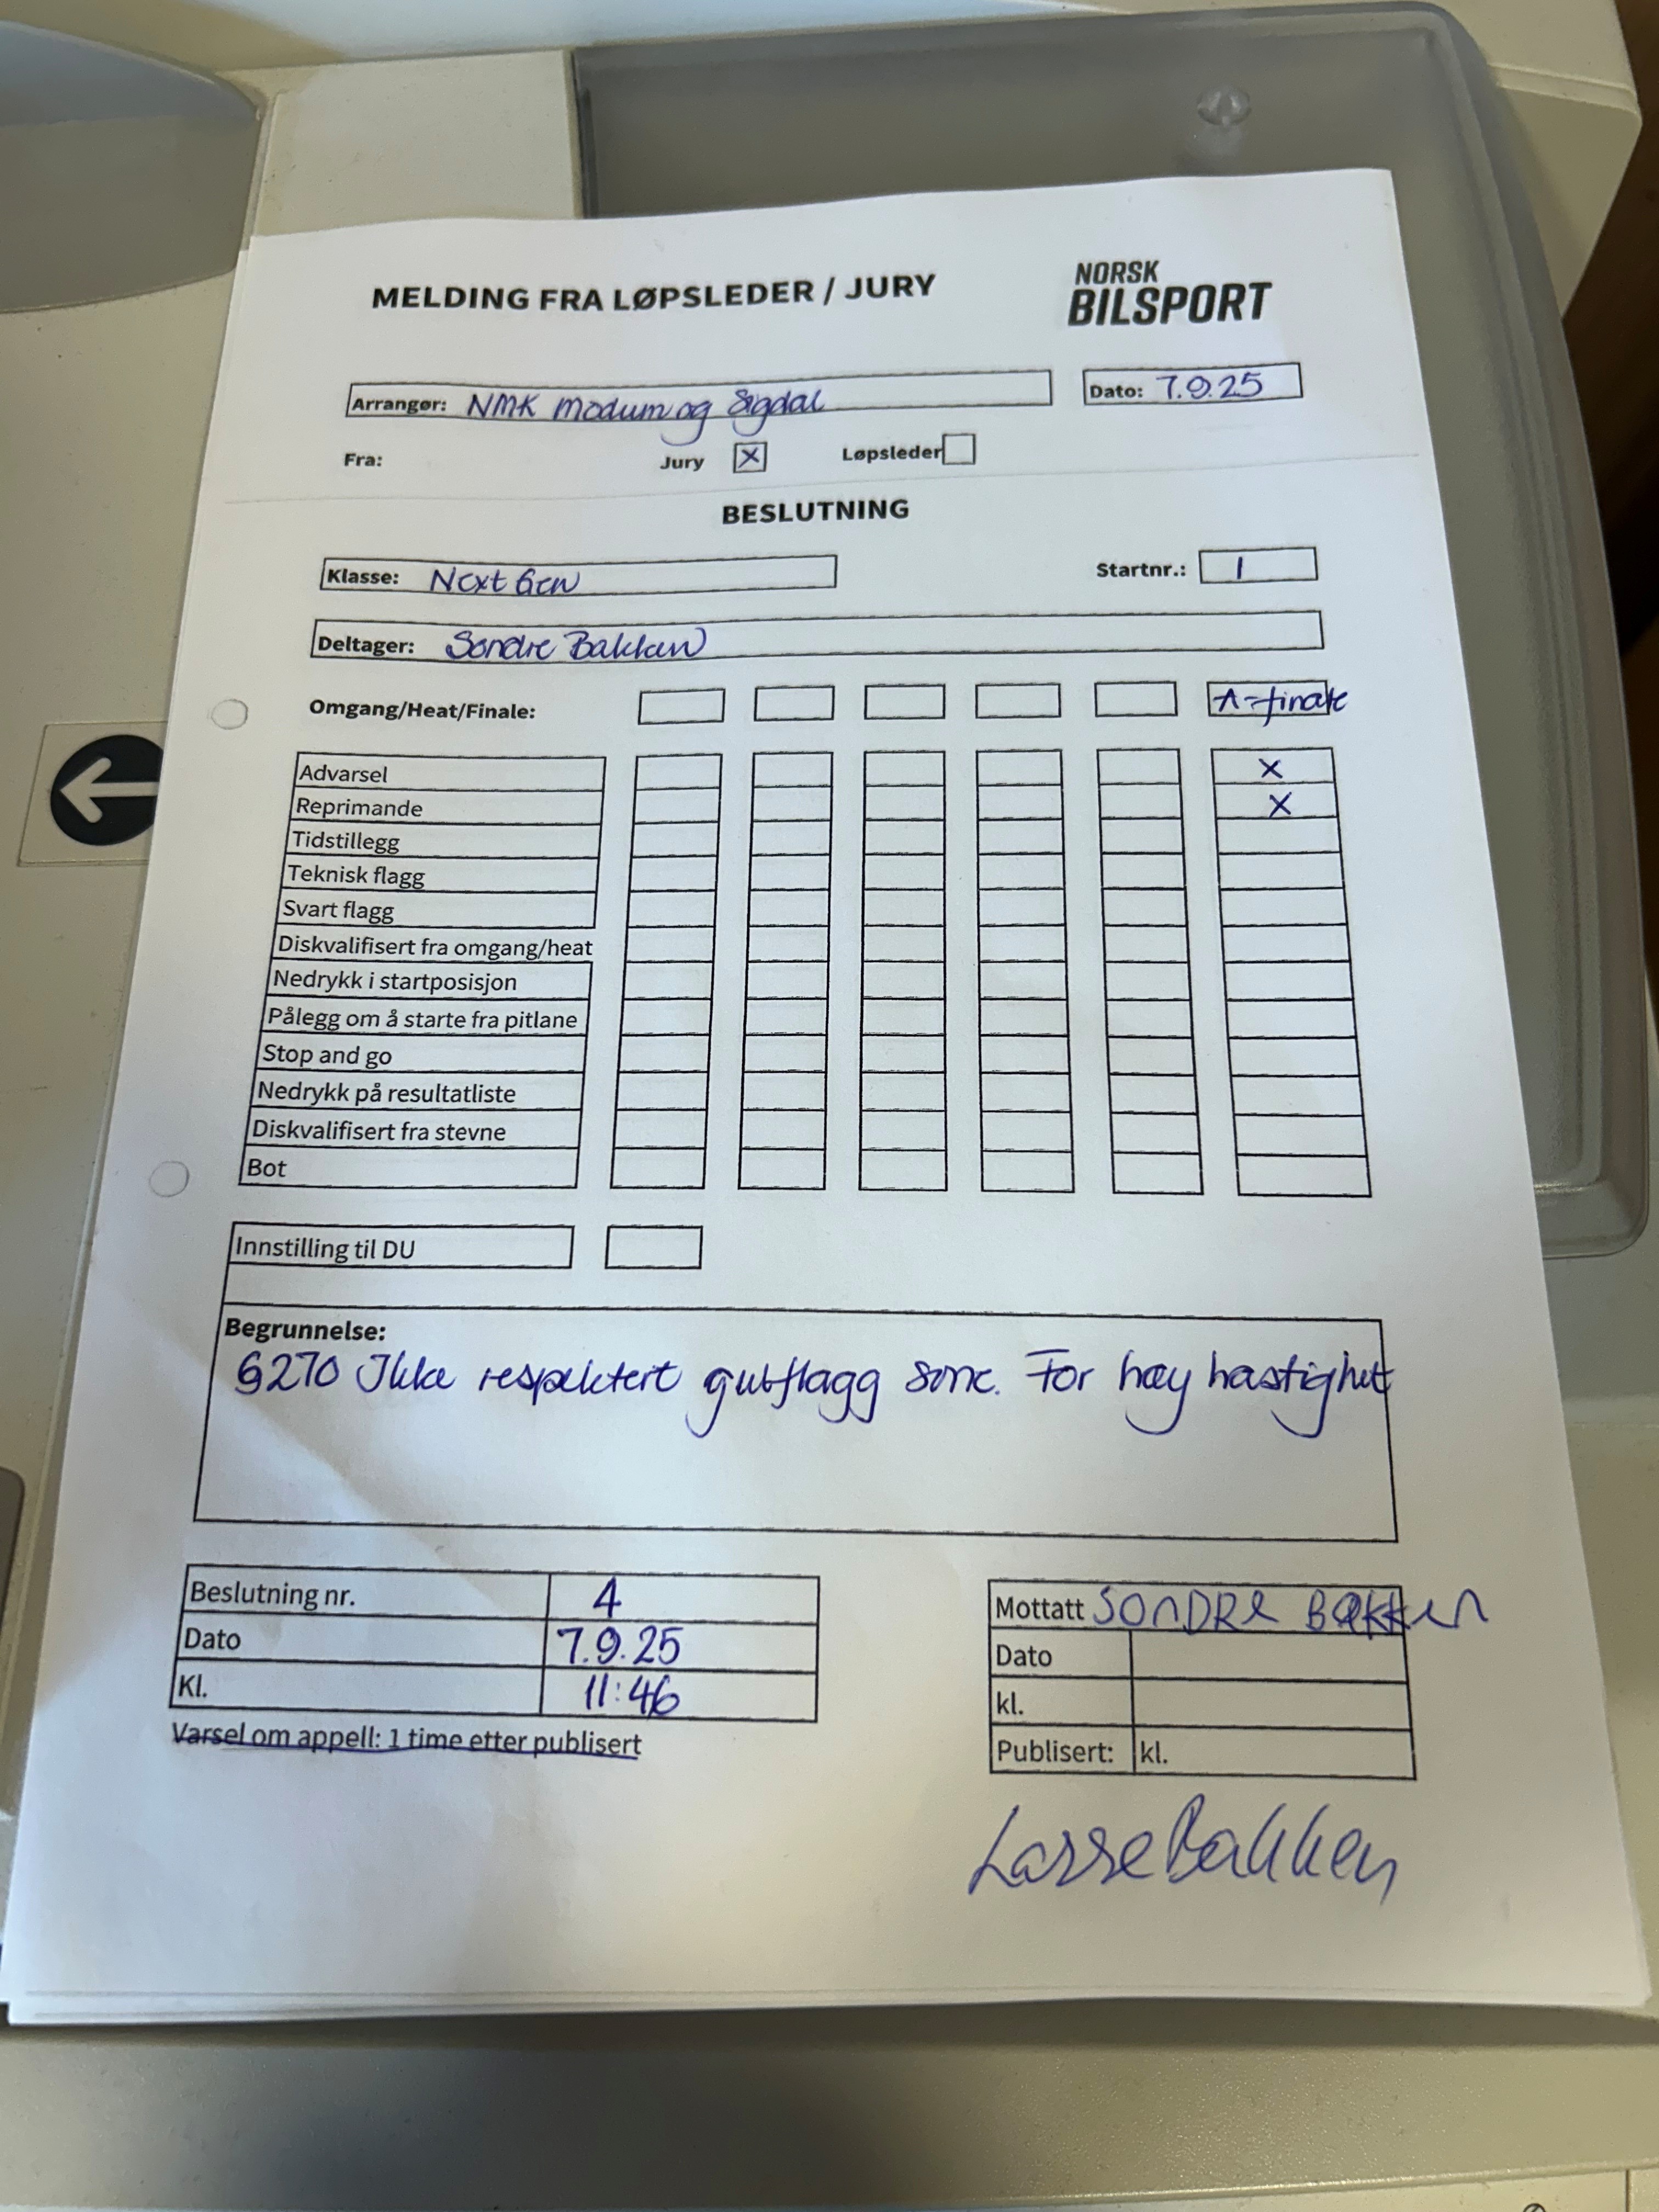 MELDING FRA LØPSLEDER / JURY
NORSK
BILSPORT
Arrangør: NMK Modum og Sigdal
Dato: 7.9.25
Fra: Jury X Løpsleder
BESLUTNING
Klasse: Next Gen
Startnr.: 1
Deltager: Sondre Bakken
Omgang/Heat/Finale: A-finale
Advarsel X
Reprimande X
Tidstillegg
Teknisk flagg
Svart flagg
Diskvalifisert fra omgang/heat
Nedrykk i startposisjon
Pålegg om å starte fra pitlane
Stop and go
Nedrykk på resultatliste
Diskvalifisert fra stevne
Bot
Innstilling til DU
Begrunnelse:
§270 Ikke respektert gulflagg sone. For høy hastighet
Beslutning nr. 4
Dato 7.9.25
Kl. 11:46
Varsel om appell: 1 time etter publisert
Mottatt SONDRE BAKKEN
Dato
kl.
Publisert: kl.
Lasse Bakken